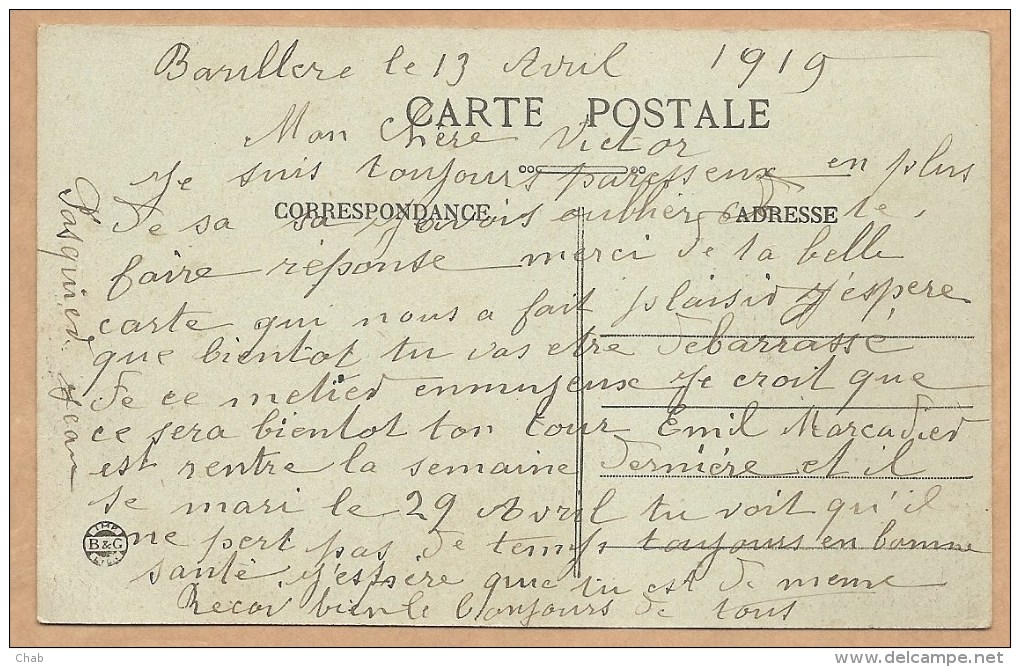 Barillere le 13 Avril 1919
CARTE POSTALE
Mon Chère Victor
Je suis toujours paresseux en plus
CORRESPONDANCE
ADRESSE
de sa sa j'avois oublier de te
faire réponse merci de ta belle
carte qui nous a fait plaisir J'éspere
que bientot tu vas etre débarrassé
de ce metier ennuyeux Je croit que
ce sera bientot ton tour Emil Marcadier
est rentre la semaine dernière et il
se mari le 29 Avril tu voit qu'il
ne pert pas de temps toujours en bonne
santé j'espère que tu est de meme
Recoi bien le bonjours de tous
Pasquier Jean
IMP
B & G
Chab
delcampe.net